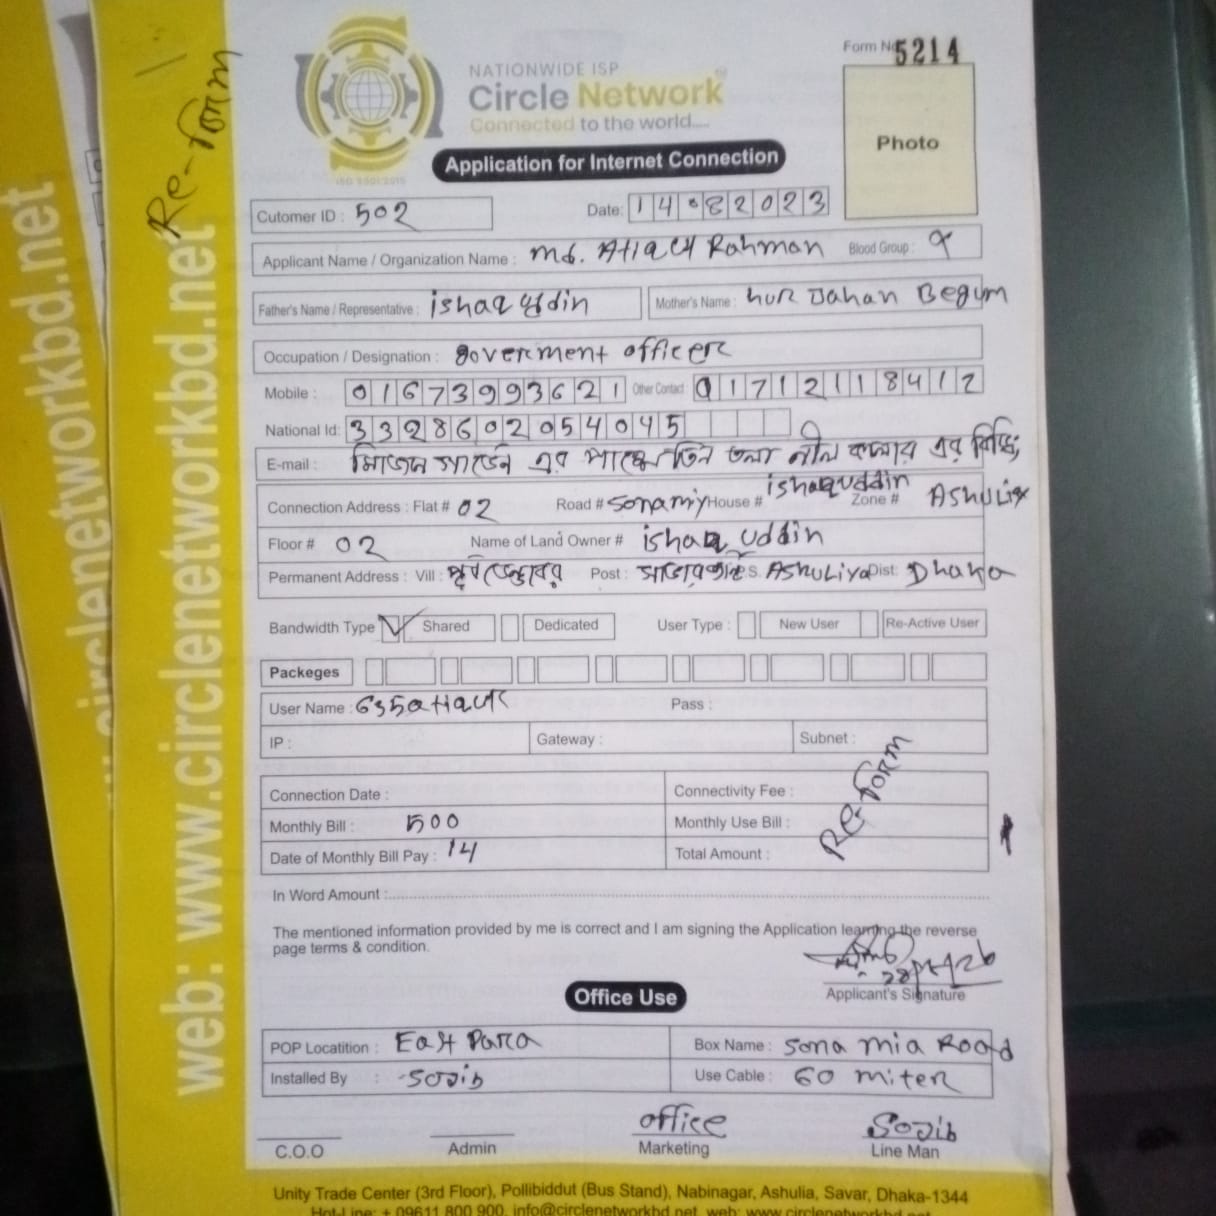 Form No 5214
NATIONWIDE ISP
Circle Network
Connected to the world....
ISO 9001:2015
Photo
Application for Internet Connection
Re-form
Cutomer ID : 502 Date: 14 082023
Applicant Name / Organization Name : Md. Atiqur Rahman Blood Group :
Father's Name / Representative : ishaq uddin Mother's Name : nur Jahan Begum
Occupation / Designation : goverment officer
Mobile : 01673993621 Other Contact : 01712118412
National Id: 3328602054045
E-mail : গার্ডেন এর পাশে তিন তলা নীল কালার এর
Connection Address : Flat # 02 Road # Sonamiy House # ishaquddin Zone # Ashulia
Floor # 02 Name of Land Owner # ishaq uddin
Permanent Address : Vill : Post : P.S. Ashuliya Dist: Dhaka
Bandwidth Type ✓ Shared Dedicated User Type : New User Re-Active User
Packeges
User Name : 635atiqur Pass :
IP : Gateway : Subnet :
Connection Date : Connectivity Fee :
Monthly Bill : 500 Monthly Use Bill :
Date of Monthly Bill Pay : 14 Total Amount :
Re-form
In Word Amount :
The mentioned information provided by me is correct and I am signing the Application learning the reverse
page terms & condition.
Applicant's Signature
Office Use
POP Locatition : East Para Box Name : Sona mia Road
Installed By : Sojib Use Cable : 60 miter
office Sojib
C.O.O Admin Marketing Line Man
Unity Trade Center (3rd Floor), Pollibiddut (Bus Stand), Nabinagar, Ashulia, Savar, Dhaka-1344
Hot-Line: + 09611 800 900, info@circlenetworkbd.net, web: www.circlenetworkbd.net
web: www.circlenetworkbd.net
www.circlenetworkbd.net